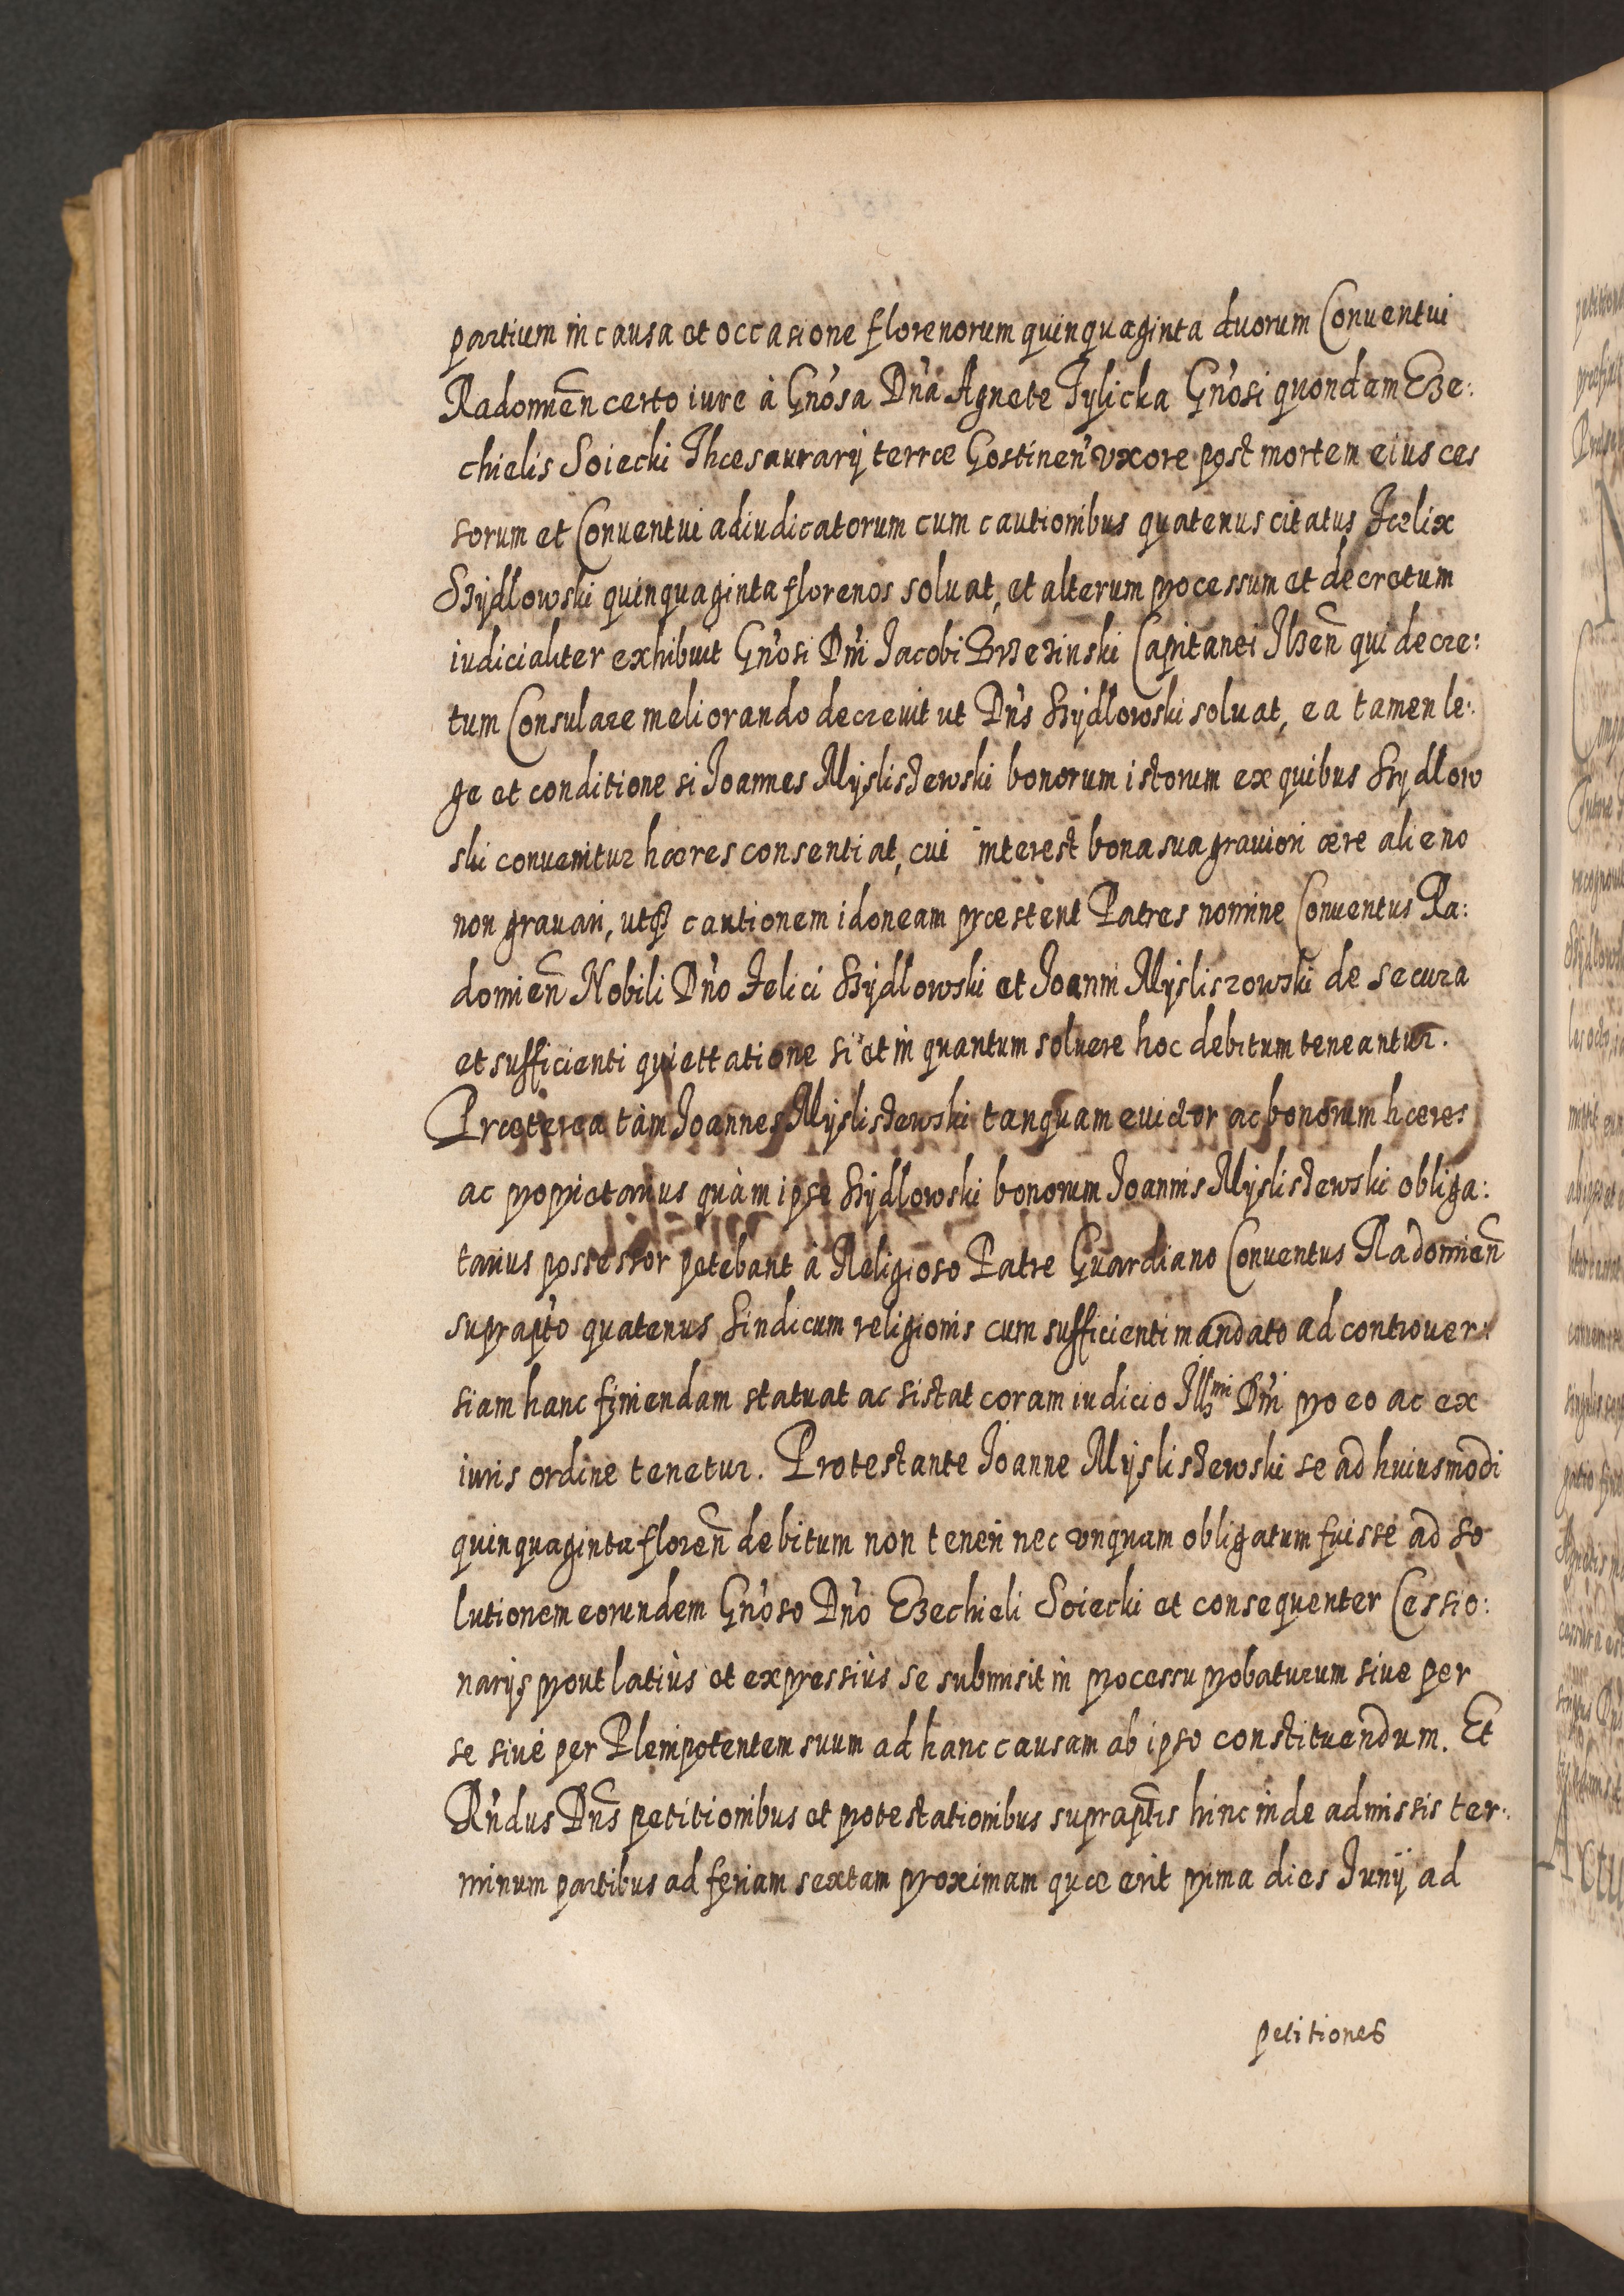 partium in causa et occasione florenorum quinquaginta duorum Conventui
Radomien̄ certo iure à Gn'osa Dn'a Agnete Tylicka Gn'osi quondam Eze:
chielis Soiecki Thæsaurarij terræ Gostinen' vxore post mortem eius ces
sorum et Conuentui adiudicatorum cum cautionibus quatenus citatus Fælix
Szydlowski quinquaginta florenos soluat, et alterum processum et decretum
iudicialiter exhibuit Gn'osi Dn'i Jacobi Brzezinski Capitanei Ilzen̄ qui decre:
tum Consulare meliorando decreuit ut Dn's Szydlowski soluat, ea tamen le:
ge et conditione si Joannes Mysliszewski bonorum istorum ex quibus Szydlow
ski conuenitur hæres consentiat, cui interest bona sua grauiori ære alieno
non grauari, utq3 cautionem idoneam præstent Patres nomine Conuentus Ra:
domien̄ Nobili Dn'o Felici Szydlowski et Joanni Mysliszowski de secura
et sufficienti quiettatione si et in quantum soluere hoc debitum teneantur.
Præterea tàm Joannes Mysliszewski tanquam euictor ac bonorum hæres
ac proprietarius quàm ipse Szydlowski bonorum Joannis Mysliszewski obliga:
tarius possessor petebant à Religioso Patre Guardiano Conuentus Radomien̄
suprap̄to quatenus Sindicum religionis cum sufficienti mandato ad controuer:
siam hanc finiendam statuat ac sistat coram iudicio Ill^mi Dn'i pro eo ac ex
iuris ordine tenetur. Protestante Joanne Mysliszewski se ad huiusmodi
quinquaginta floren̄ debitum non teneri nec vnquam obligatum fuisse ad so
lutionem eorundem Gn'oso Dn'o Ezechieli Soiecki et consequenter Cessio:
narijs prout latiùs et expressiùs se submisit in processu probaturum siue per
se siue per Plenipotentem suum ad hanc causam ab ipso constituendum. Et
Rn'dus Dn̄s petitionibus et protestationibus suprap̄tis hinc inde admissis ter:
minum partibus ad feriam sextam proximam quæ erit prima dies Junij ad
petitiones